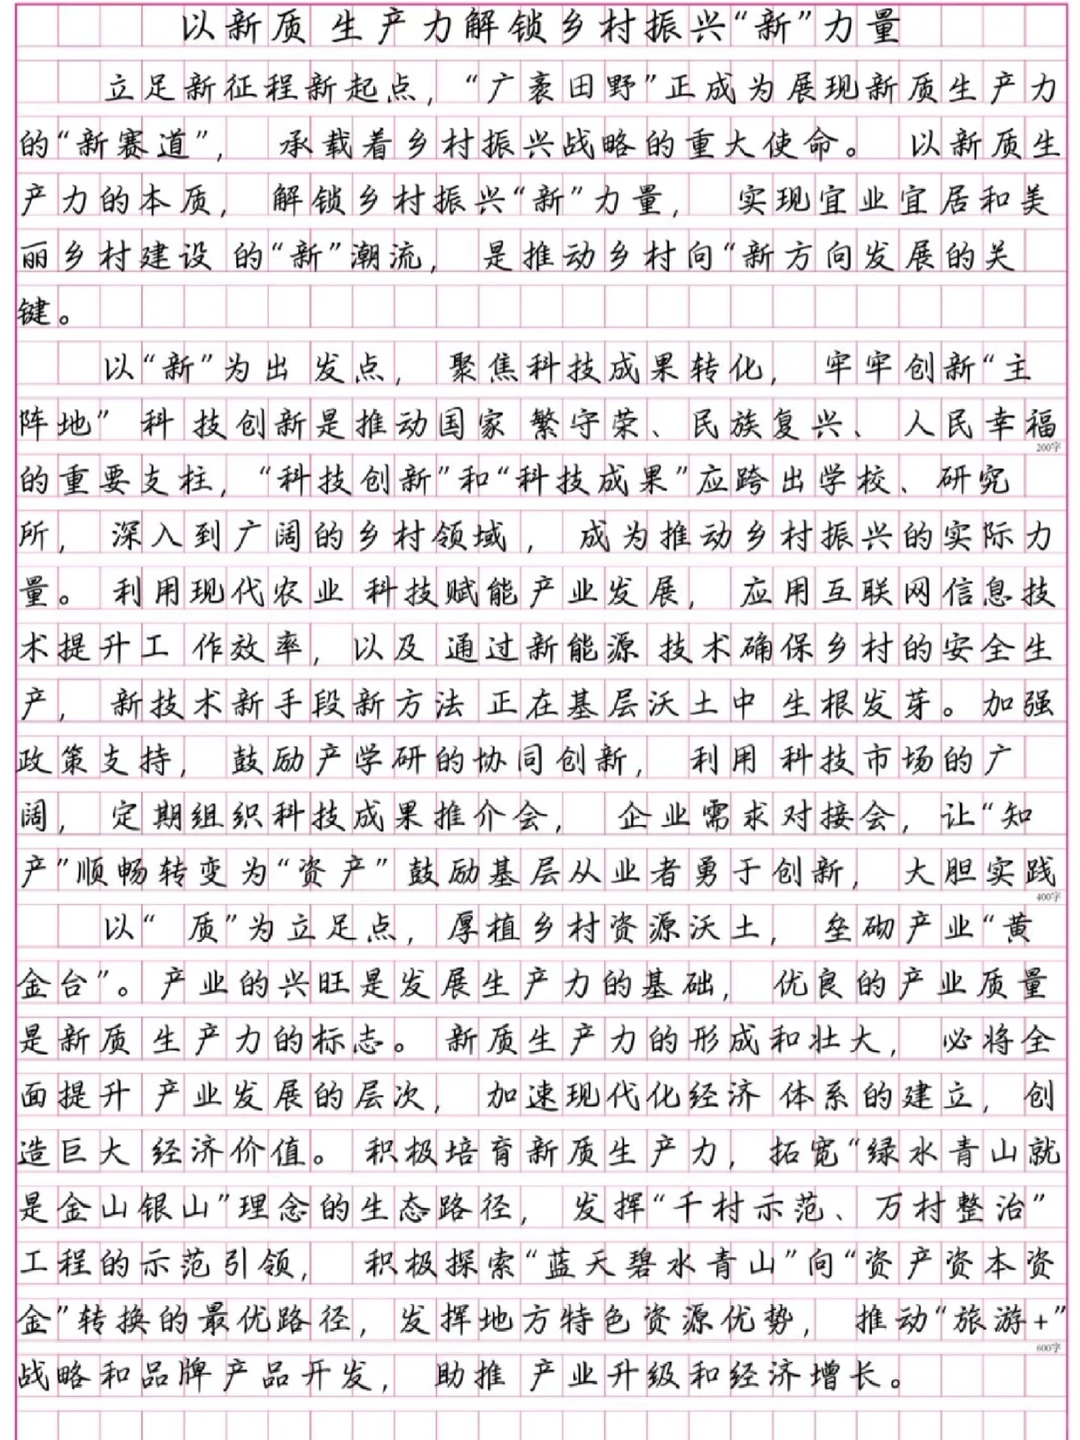 以新质生产力解锁乡村振兴“新”力量
立足新征程新起点，“广袤田野”正成为展现新质生产力
的“新赛道”，承载着乡村振兴战略的重大使命。以新质生
产力的本质，解锁乡村振兴“新”力量，实现宜业宜居和美
丽乡村建设的“新”潮流，是推动乡村向“新方向发展的关
键。
以“新”为出发点，聚焦科技成果转化，牢牢创新“主
阵地”科技创新是推动国家繁守荣、民族复兴、人民幸福
200字
的重要支柱，“科技创新”和“科技成果”应跨出学校、研究
所，深入到广阔的乡村领域，成为推动乡村振兴的实际力
量。利用现代农业科技赋能产业发展，应用互联网信息技
术提升工作效率，以及通过新能源技术确保乡村的安全生
产，新技术新手段新方法正在基层沃土中生根发芽。加强
政策支持，鼓励产学研的协同创新，利用科技市场的广
阔，定期组织科技成果推介会，企业需求对接会，让“知
产”顺畅转变为“资产”鼓励基层从业者勇于创新，大胆实践
400字
以“质”为立足点，厚植乡村资源沃土，垒砌产业“黄
金台”。产业的兴旺是发展生产力的基础，优良的产业质量
是新质生产力的标志。新质生产力的形成和壮大，必将全
面提升产业发展的层次，加速现代化经济体系的建立，创
造巨大经济价值。积极培育新质生产力，拓宽“绿水青山就
是金山银山”理念的生态路径，发挥“千村示范、万村整治”
工程的示范引领，积极探索“蓝天碧水青山”向“资产资本资
金”转换的最优路径，发挥地方特色资源优势，推动“旅游+”
600字
战略和品牌产品开发，助推产业升级和经济增长。